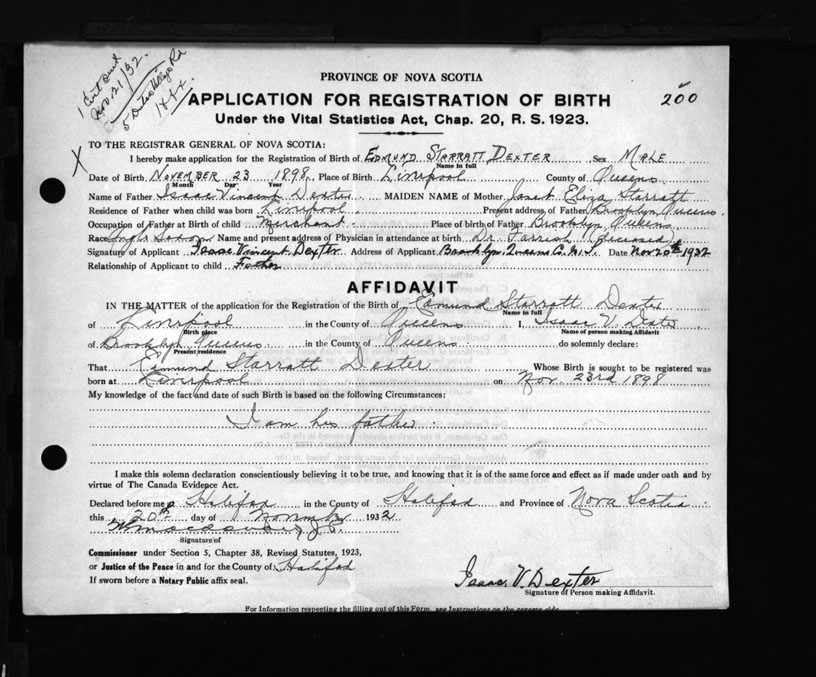 1 Cert sent
Nov. 21/32.
PROVINCE OF NOVA SCOTIA
APPLICATION FOR REGISTRATION OF BIRTH
200
Under the Vital Statistics Act, Chap. 20, R. S. 1923.
X TO THE REGISTRAR GENERAL OF NOVA SCOTIA:
I hereby make application for the Registration of Birth of EDMUND STARRATT DEXTER Sex MALE
Name in full
Date of Birth NOVEMBER 23 1898 Place of Birth Liverpool County of Queens
Month Day Year
Name of Father Isaac Vincent Dexter MAIDEN NAME of Mother Janet Eliza Starratt
Residence of Father when child was born Liverpool Present address of Father Brooklyn Queens
Occupation of Father at Birth of child Merchant Place of birth of Father Brooklyn Queens
Race Anglo Saxon Name and present address of Physician in attendance at birth Dr. Farrish (Deceased)
Signature of Applicant Isaac Vincent Dexter Address of Applicant Brooklyn Queens Co. N.S. Date Nov 20th 1932
Relationship of Applicant to child Father
AFFIDAVIT
IN THE MATTER of the application for the Registration of the Birth of Edmund Starratt Dexter
Name in full
of Liverpool in the County of Queens I, Isaac V. Dexter
Birth place Name of person making Affidavit
of Brooklyn Queens in the County of Queens do solemnly declare:
Present residence
That Edmund Starratt Dexter Whose Birth is sought to be registered was
born at Liverpool on Nov. 23rd 1898
My knowledge of the fact and date of such Birth is based on the following Circumstances:
I am his father
I make this solemn declaration conscientiously believing it to be true, and knowing that it is of the same force and effect as if made under oath and by
virtue of The Canada Evidence Act.
Declared before me a Halifax in the County of Halifax and Province of Nova Scotia
this 20th day of November 1932
J.P.
Signature of
Commissioner under Section 5, Chapter 38, Revised Statutes, 1923,
or Justice of the Peace in and for the County of Halifax
If sworn before a Notary Public affix seal.
Isaac V. Dexter
Signature of Person making Affidavit.
For Information respecting the filling out of this Form, see Instructions on the reverse side.